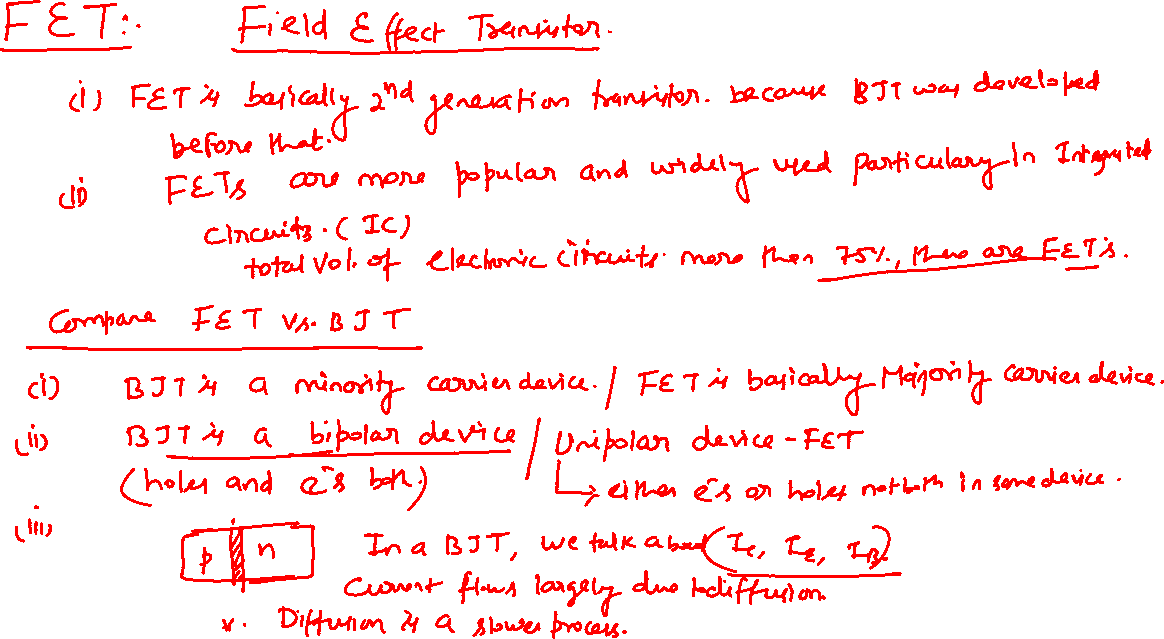 FET:- Field Effect Transistor.
(i) FET is basically 2nd generation transistor. because BJT was developed
before that.
(ii) FETs are more popular and widely used particulary in Integrated
circuits. (IC)
total vol. of electronic circuits more than 75%, there are FETs.
Compare FET Vs. BJT
(i) BJT is a minority carrier device. / FET is basically Majority carrier device.
(ii) BJT is a bipolar device / Unipolar device - FET
(holes and e⁻s both.) → either e⁻s or holes not both in same device.
(iii) p n In a BJT, we talk about (IC, IE, IB)
Current flows largely due to diffusion.
x. Diffusion is a slower process.